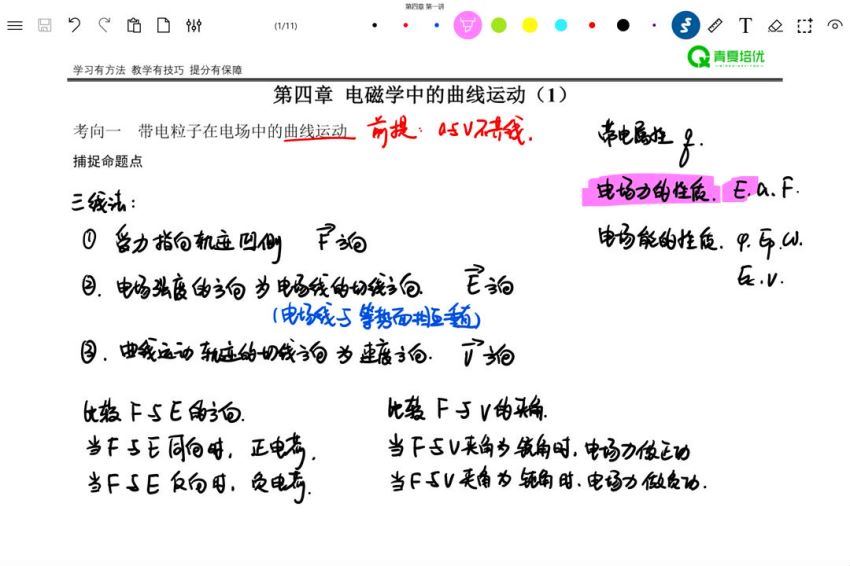 第四章 第一讲
(1/11)
T
青夏培优
学习有方法 教学有技巧 提分有保障
第四章 电磁学中的曲线运动（1）
考向一 带电粒子在电场中的曲线运动 前提：a与v不共线.
带电属性 q.
捕捉命题点
电场力的性质. E.a.F.
三线法：
① 受力指向轨迹凹侧 F方向
电场能的性质. φ.Ep.w.
Ek.v.
②. 电场强度的方向为电场线的切线方向. E方向
(电场线与等势面相互垂直)
③. 曲线运动轨迹的切线方向为速度方向. V方向
比较F与E的方向.
比较F与V的夹角.
当F与E同向时，正电荷.
当F与V夹角为锐角时，电场力做正功
当F与E反向时，负电荷.
当F与V夹角为钝角时，电场力做负功.